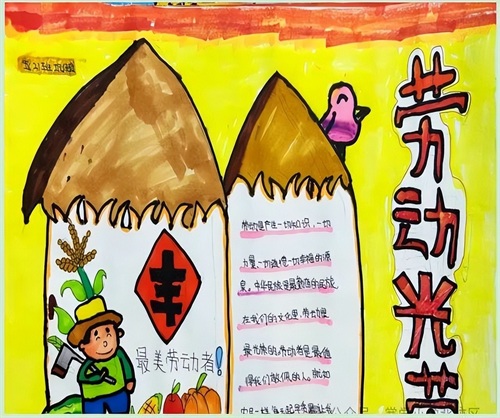 劳动光荣
丰
最美劳动者!
劳动是产生一切知识,一切
力量、一切道德、一切幸福的源
泉。中华民族是最勤劳的民族,
在我们的文化里,劳动是
最光荣的,劳动者是最值
得我们敬佩的人。